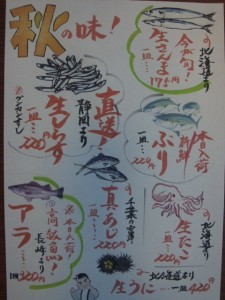 秋の味!
北海道より
今が旬!
生さんま
一皿…175円
直送!
静岡より
生しらす
一皿…220円
本日入荷
新鮮
ぶり
一皿…220円
北海道より
生たこ
一皿…220円
千葉の海岸
真あじ
一皿…220円
本日入荷
高級魚
長崎より
アラ
一皿320円
北海道より
生うに…一皿420円